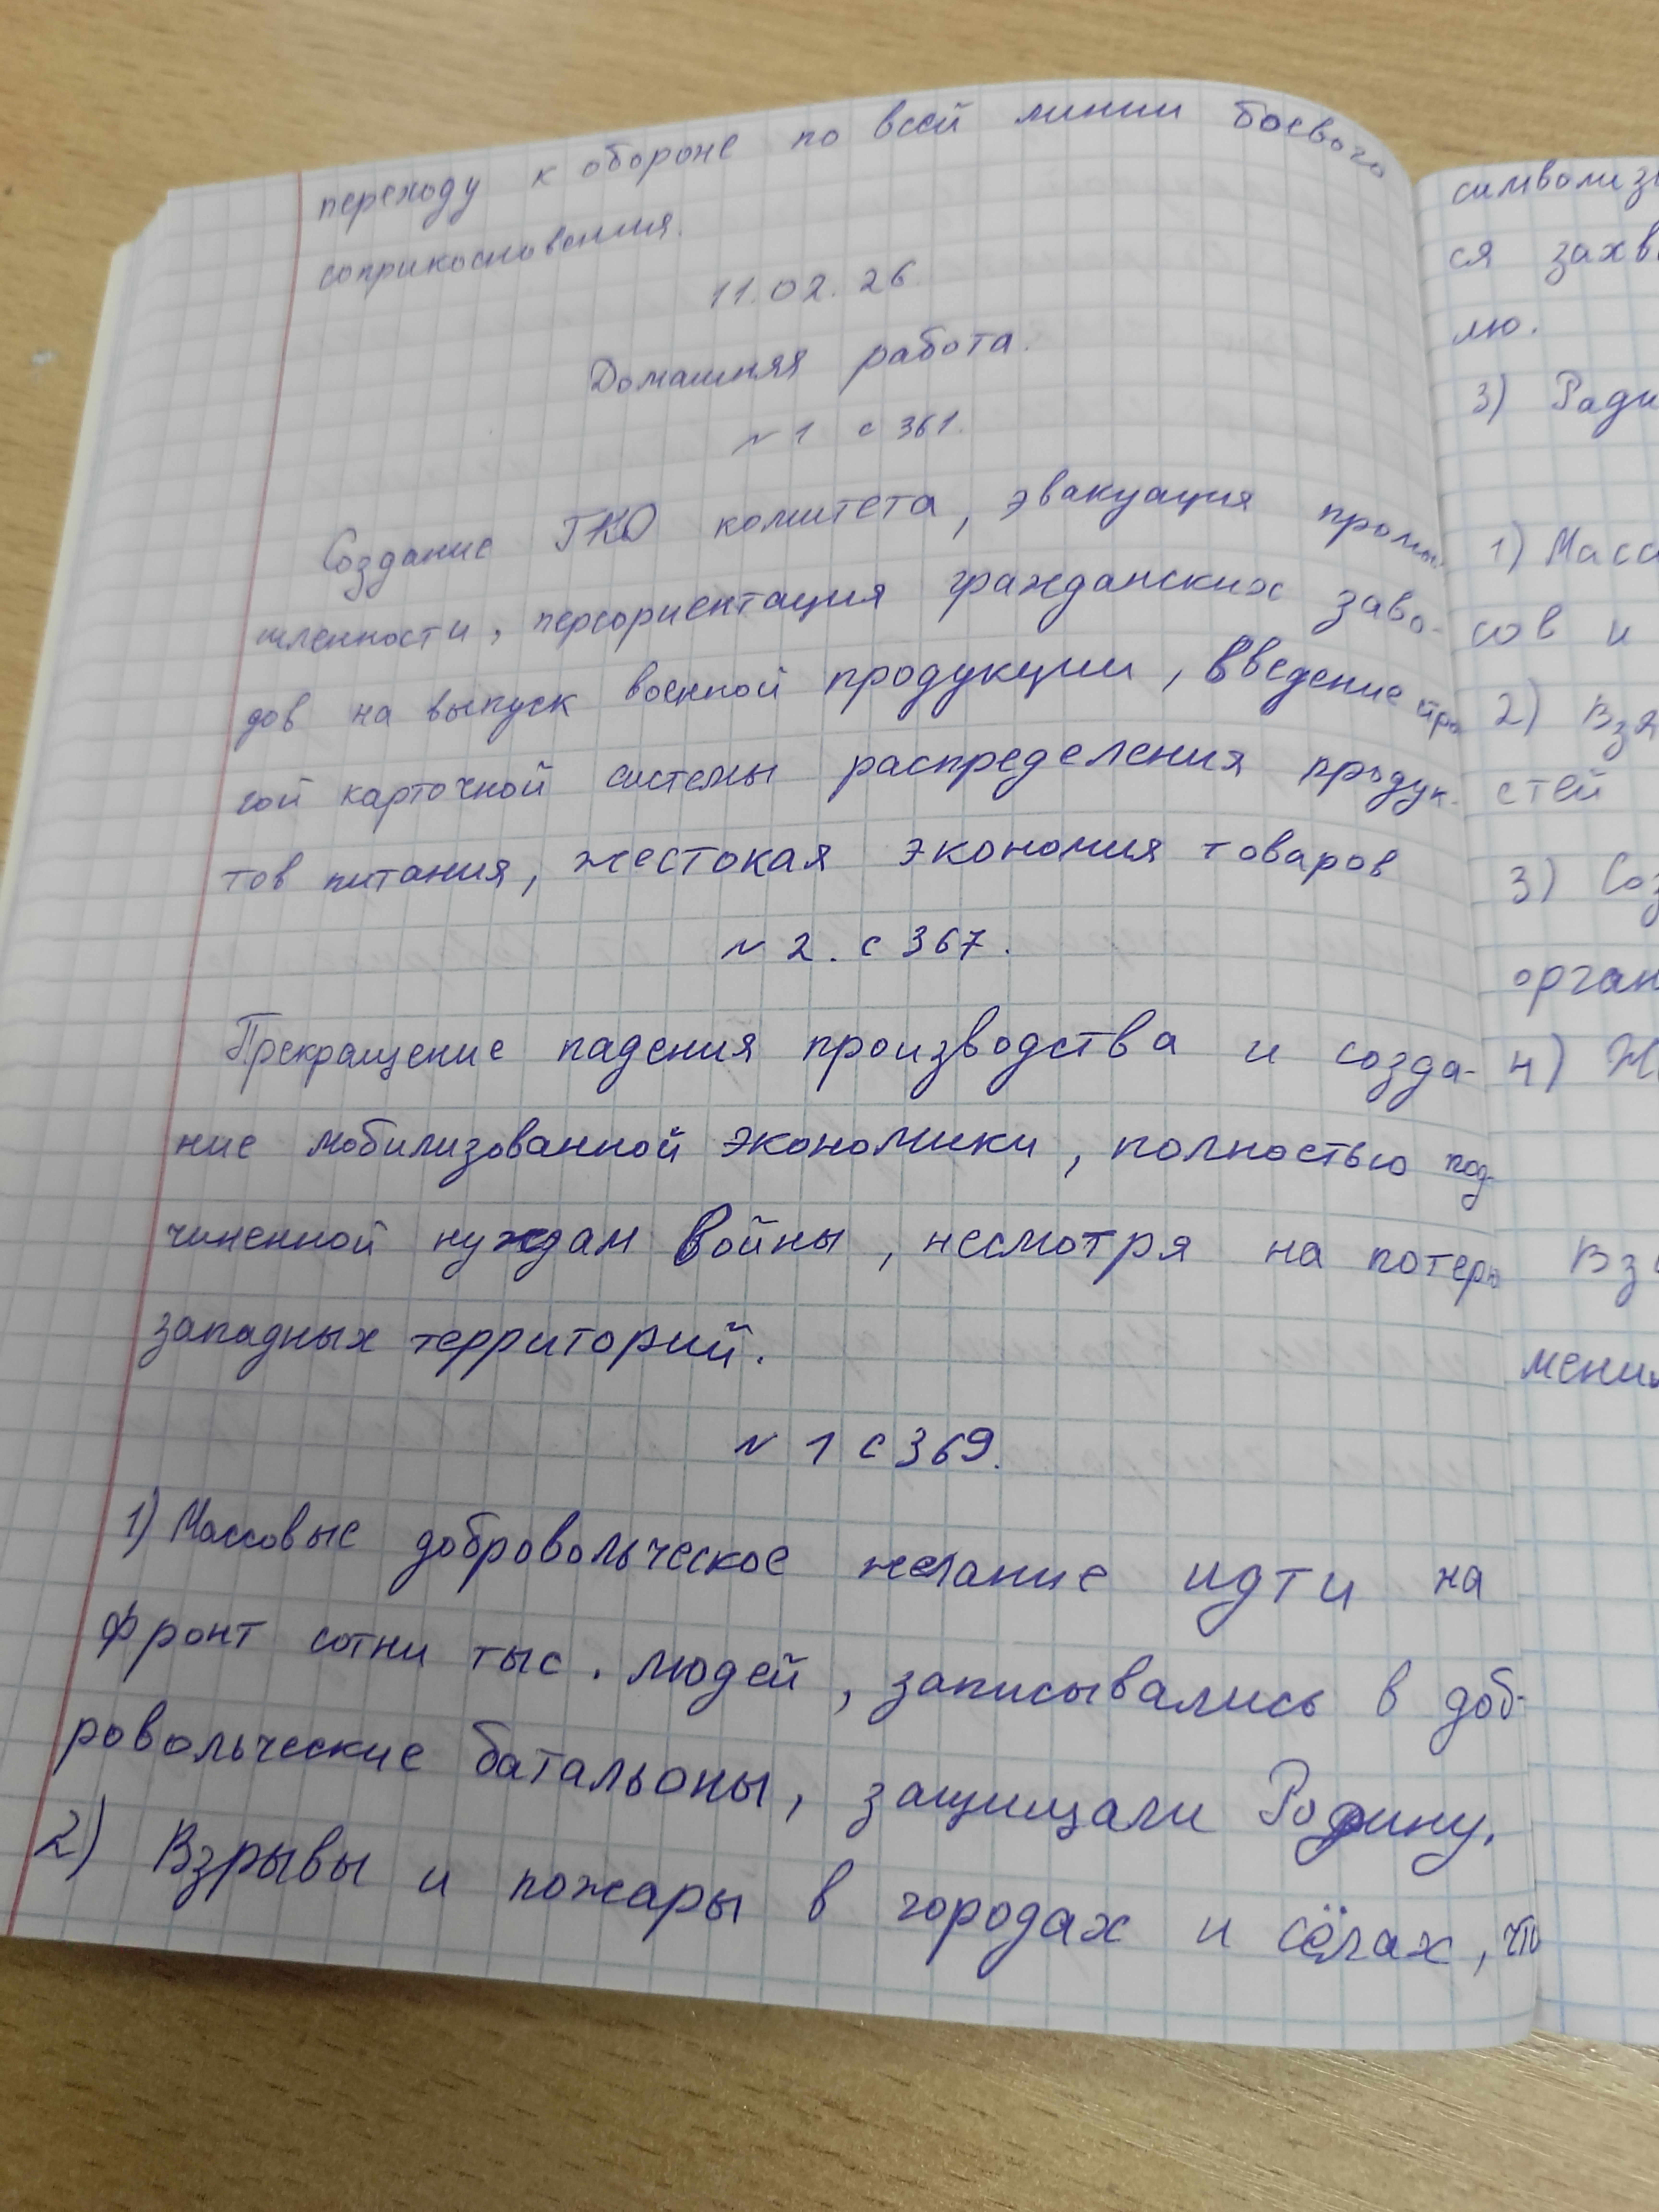 переходу к обороне по всей линии боевого
соприкосновения.
11.02.26.
Домашняя работа.
№1 с 361.
Создание ГКО комитета, эвакуация промы-
шленности, переориентация гражданских заво-
дов на выпуск военной продукции, введение стро
гой карточной системы распределения продук-
тов питания, жестокая экономия товаров
№2. с 367.
Прекращение падения производства и созда-
ние мобилизованной экономики, полностью под-
чиненной нуждам войны, несмотря на потерю
западных территорий.
№1 с 369.
1) Массовые добровольческое желание идти на
фронт сотни тыс. людей, записывались в доб-
ровольческие батальоны, защищали Родину.
2) Взрывы и пожары в городах и сёлах, что
символизи
ся захв
лю.
3) Ради
1) Масс
сов и
2) Взя
стей
3) Соз
орган
4)
Вз
мени